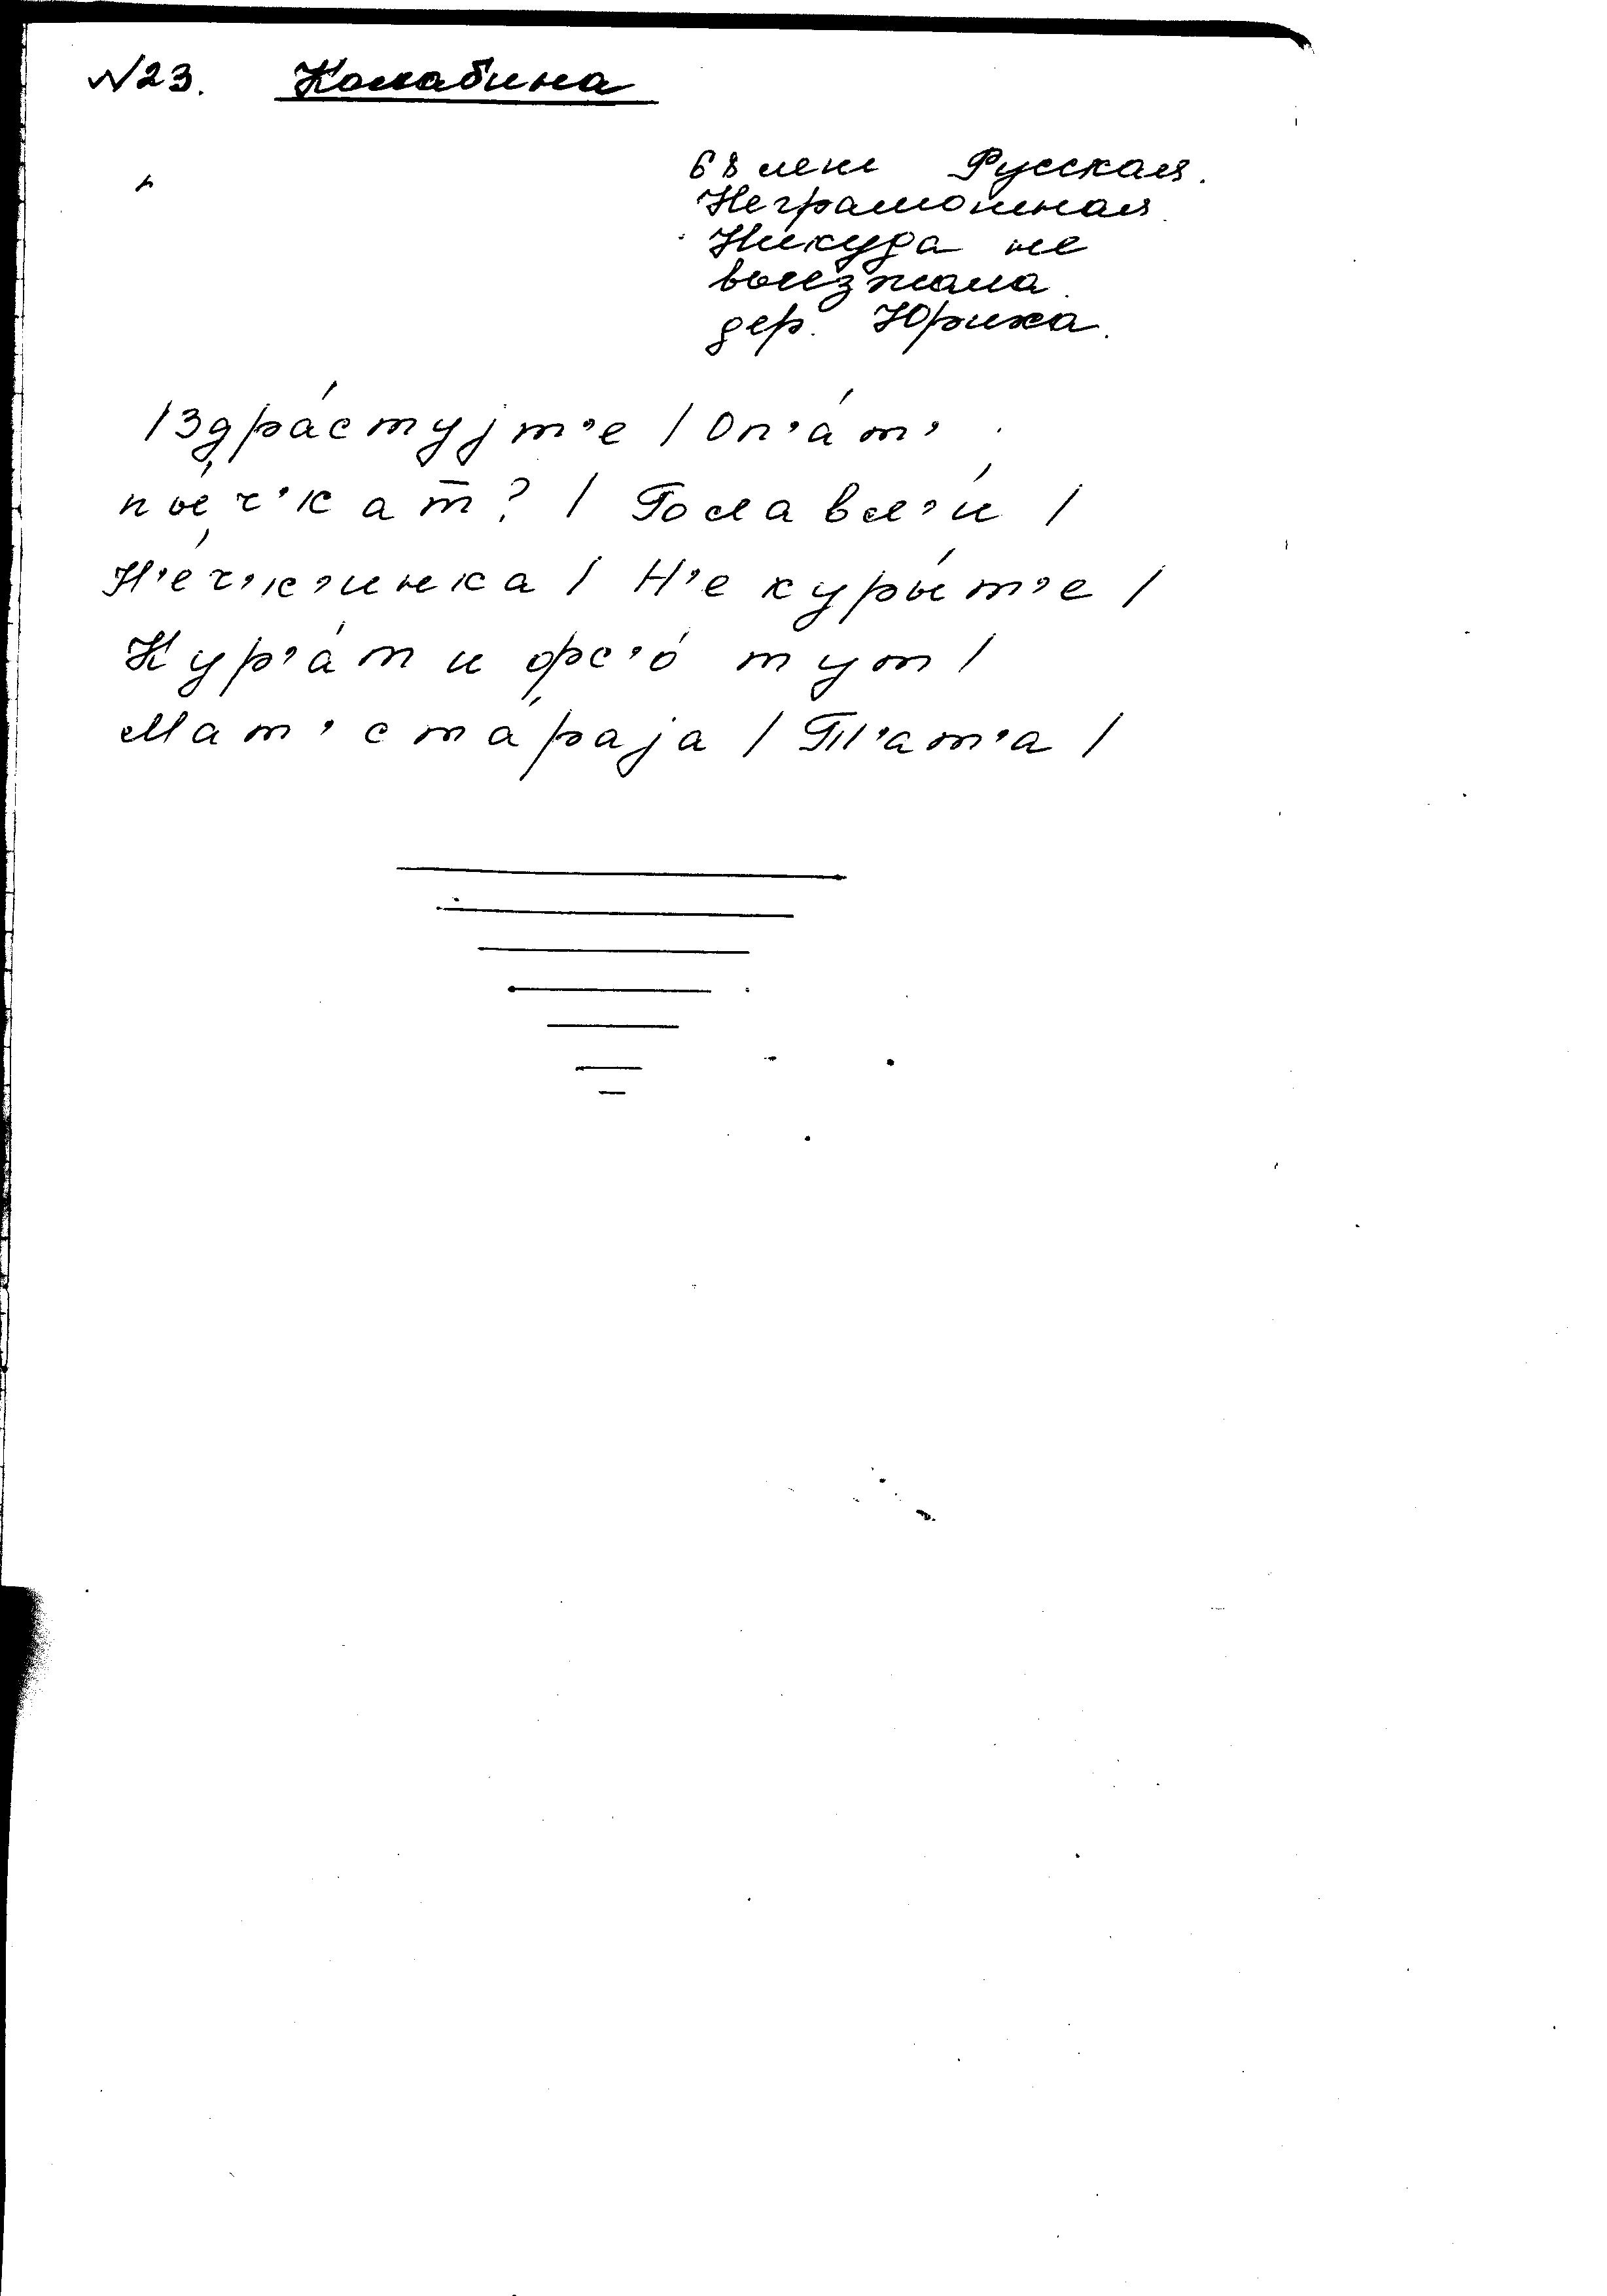 №23. Колабина
68 лет Русская.
Неграмотная.
Никуда не
выезжала.
дер. Юриха.
/Здрáстујт'е / Оп'áт'
пы́ч'кат? / Голавл'и́ /
Н'е́ч'к'инка / Н'е куры́т'е /
Кур'áт и фс'о́ тут /
Мат' стáраја / Т'ат'а /